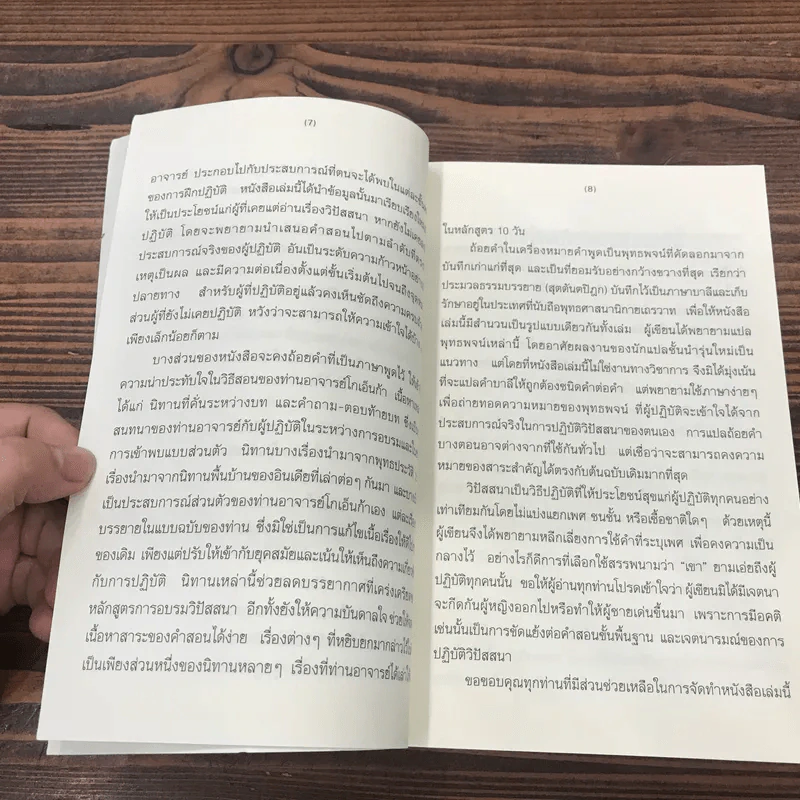 (7)
อาจารย์ ประกอบไปกับประสบการณ์ที่ตนจะได้พบในแต่ละขั้น
ของการฝึกปฏิบัติ หนังสือเล่มนี้ได้นำข้อมูลนั้นมาเรียบเรียง
ให้เป็นประโยชน์แก่ผู้ที่เคยแต่อ่านเรื่องวิปัสสนา หากยังไม่เคย
ปฏิบัติ โดยจะพยายามนำเสนอคำสอนไปตามลำดับ
ประสบการณ์จริงของผู้ปฏิบัติ อันเป็นระดับความก้าวหน้า
เหตุเป็นผล และมีความต่อเนื่องตั้งแต่ขั้นเริ่มต้นไปจนถึง
ปลายทาง สำหรับผู้ที่ปฏิบัติอยู่แล้วคงเห็นชัดถึงความ
ส่วนผู้ที่ยังไม่เคยปฏิบัติ หวังว่าจะสามารถให้ความเข้าใจได้
เพียงเล็กน้อยก็ตาม
บางส่วนของหนังสือจะคงถ้อยคำที่เป็นภาษาพูดไว้
ความน่าประทับใจในวิธีสอนของท่านอาจารย์โกเอ็นก้า เนื้อหา
ได้แก่ นิทานที่คั่นระหว่างบท และคำถาม-ตอบท้ายบท
สนทนาของท่านอาจารย์กับผู้ปฏิบัติในระหว่างการอบรม
การเข้าพบแบบส่วนตัว นิทานบางเรื่องนำมาจากพุทธประวัติ
เรื่องนำมาจากนิทานพื้นบ้านของอินเดียที่เล่าต่อๆ กันมา
เป็นประสบการณ์ส่วนตัวของท่านอาจารย์โกเอ็นก้าเอง
บรรยายในแบบฉบับของท่าน ซึ่งมิใช่เป็นการแก้ไขเนื้อเรื่อง
ของเดิม เพียงแต่ปรับให้เข้ากับยุคสมัยและเน้นให้เห็นถึงความ
กับการปฏิบัติ นิทานเหล่านี้ช่วยลดบรรยากาศที่เคร่งเครียด
หลักสูตรการอบรมวิปัสสนา อีกทั้งยังให้ความบันดาลใจ
เนื้อหาสาระของคำสอนได้ง่าย เรื่องต่างๆ ที่หยิบยกมากล่าวไว้
เป็นเพียงส่วนหนึ่งของนิทานหลายๆ เรื่องที่ท่านอาจารย์ได้เล่า
(8)
ในหลักสูตร 10 วัน
ถ้อยคำในเครื่องหมายคำพูดเป็นพุทธพจน์ที่คัดลอกมาจาก
บันทึกเก่าแก่ที่สุด และเป็นที่ยอมรับอย่างกว้างขวางที่สุด เรียกว่า
ประมวลธรรมบรรยาย (สุตตันตปิฎก) บันทึกไว้เป็นภาษาบาลีและเก็บ
รักษาอยู่ในประเทศที่นับถือพุทธศาสนานิกายเถรวาท เพื่อให้หนังสือ
เล่มนี้มีสำนวนเป็นรูปแบบเดียวกันทั้งเล่ม ผู้เขียนได้พยายามแปล
พุทธพจน์เหล่านี้ โดยอาศัยผลงานของนักแปลชั้นนำรุ่นใหม่เป็น
แนวทาง แต่โดยที่หนังสือนี้ไม่ใช่งานทางวิชาการ จึงมิได้มุ่งเน้น
ที่จะแปลคำบาลีให้ถูกต้องชนิดคำต่อคำ แต่พยายามใช้ภาษาง่ายๆ
เพื่อถ่ายทอดความหมายของพุทธพจน์ ที่ผู้ปฏิบัติจะเข้าใจได้จาก
ประสบการณ์จริงในการปฏิบัติวิปัสสนาของตนเอง การแปลถ้อยคำ
บางตอนอาจต่างจากที่ใช้กันทั่วไป แต่เชื่อว่าจะสามารถคงความ
หมายของสาระสำคัญได้ตรงกับต้นฉบับเดิมมากที่สุด
วิปัสสนาเป็นวิธีปฏิบัติที่ให้ประโยชน์สุขแก่ผู้ปฏิบัติทุกคนอย่าง
เท่าเทียมกันโดยไม่แบ่งแยกเพศ ชนชั้น หรือเชื้อชาติใดๆ ด้วยเหตุนี้
ผู้เขียนจึงได้พยายามหลีกเลี่ยงการใช้คำที่ระบุเพศ เพื่อคงความเป็น
กลางไว้ อย่างไรก็ดีการที่เลือกใช้สรรพนามว่า "เขา" ยามเอ่ยถึงผู้
ปฏิบัติทุกคนนั้น ขอให้ผู้อ่านทุกท่านโปรดเข้าใจว่า ผู้เขียนมิได้มีเจตนา
จะกีดกันผู้หญิงออกไปหรือทำให้ผู้ชายเด่นขึ้นมา เพราะการมีอคติ
เช่นนั้นเป็นการขัดแย้งต่อคำสอนขั้นพื้นฐาน และเจตนารมณ์ของการ
ปฏิบัติวิปัสสนา
ขอขอบคุณทุกท่านที่มีส่วนช่วยเหลือในการจัดทำหนังสือเล่มนี้